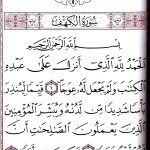 سُورَةُ الْكَهْفِ
بِسْمِ اللَّهِ الرَّحْمَٰنِ الرَّحِيمِ
الْحَمْدُ لِلَّهِ الَّذِي أَنزَلَ عَلَىٰ عَبْدِهِ
الْكِتَٰبَ وَلَمْ يَجْعَل لَّهُ عِوَجَا ۜ ١ قَيِّمًا لِّيُنذِرَ
بَأْسًا شَدِيدًا مِّن لَّدُنْهُ وَيُبَشِّرَ الْمُؤْمِنِينَ
الَّذِينَ يَعْمَلُونَ الصَّٰلِحَٰتِ أَنَّ